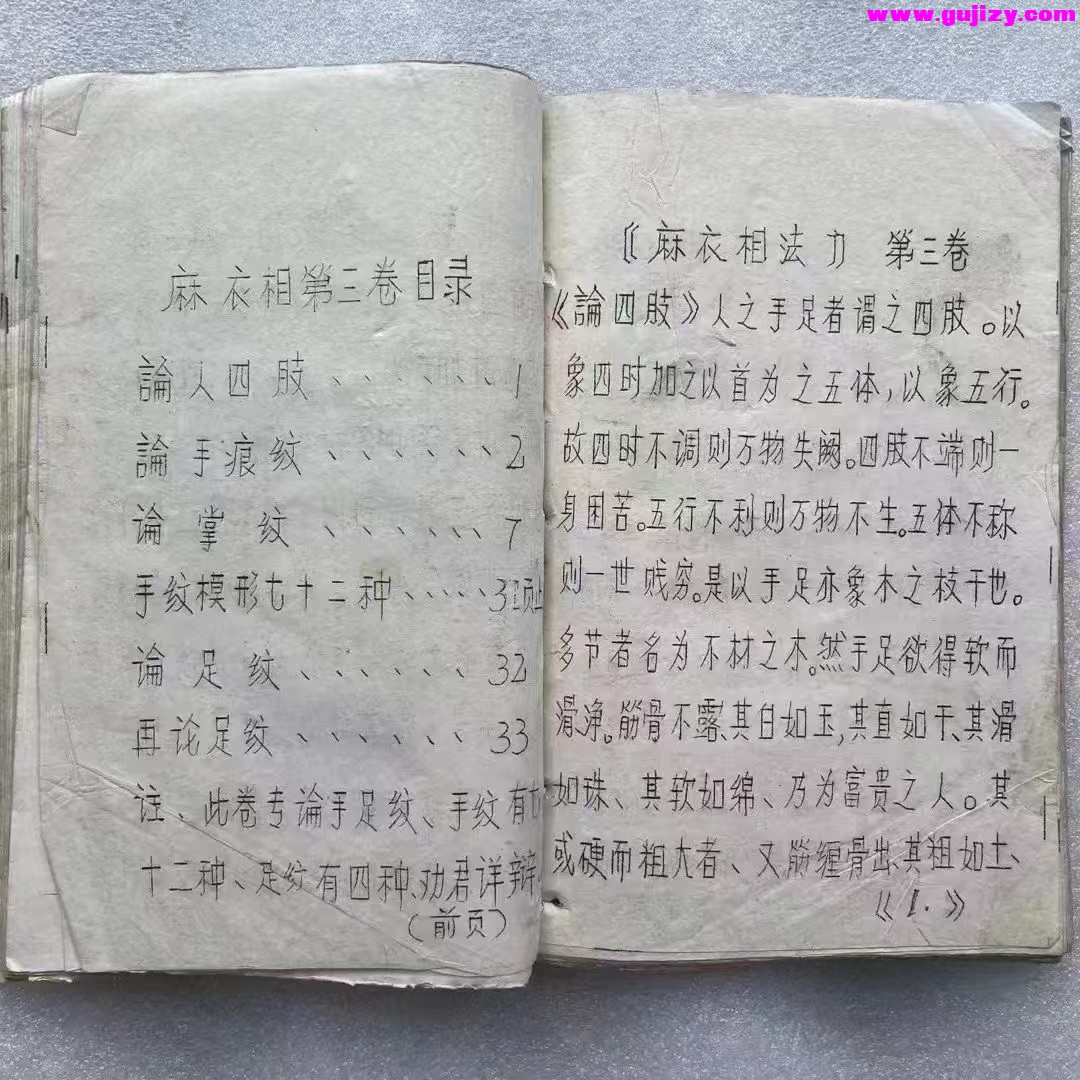 www.gujizy.com
麻衣相第三卷目录
論人四肢、、、、、、1
論手痕纹、、、、、、2
论掌纹、、、、、、7
手纹模形七十二种、、、、、31页
论足纹、、、、、、32
再论足纹、、、、、、33
注、此卷专论手足纹、手纹有七
十二种、足纹有四种、劝君详辩
(前页)
《麻衣相法》 第三卷
《論四肢》人之手足者谓之四肢。以
象四时加之以首为之五体,以象五行。
故四时不调则万物失阙。四肢不端则一
身困苦。五行不利则万物不生。五体不称
则一世贱穷。是以手足亦象木之枝干也。
多节者名为不材之木。然手足欲得软而
滑净。筋骨不露、其白如玉,其直如干、其滑
如珠、其软如绵、乃为富贵之人。其
或硬而粗大者、又筋缠骨出、其粗如土、
《1.》